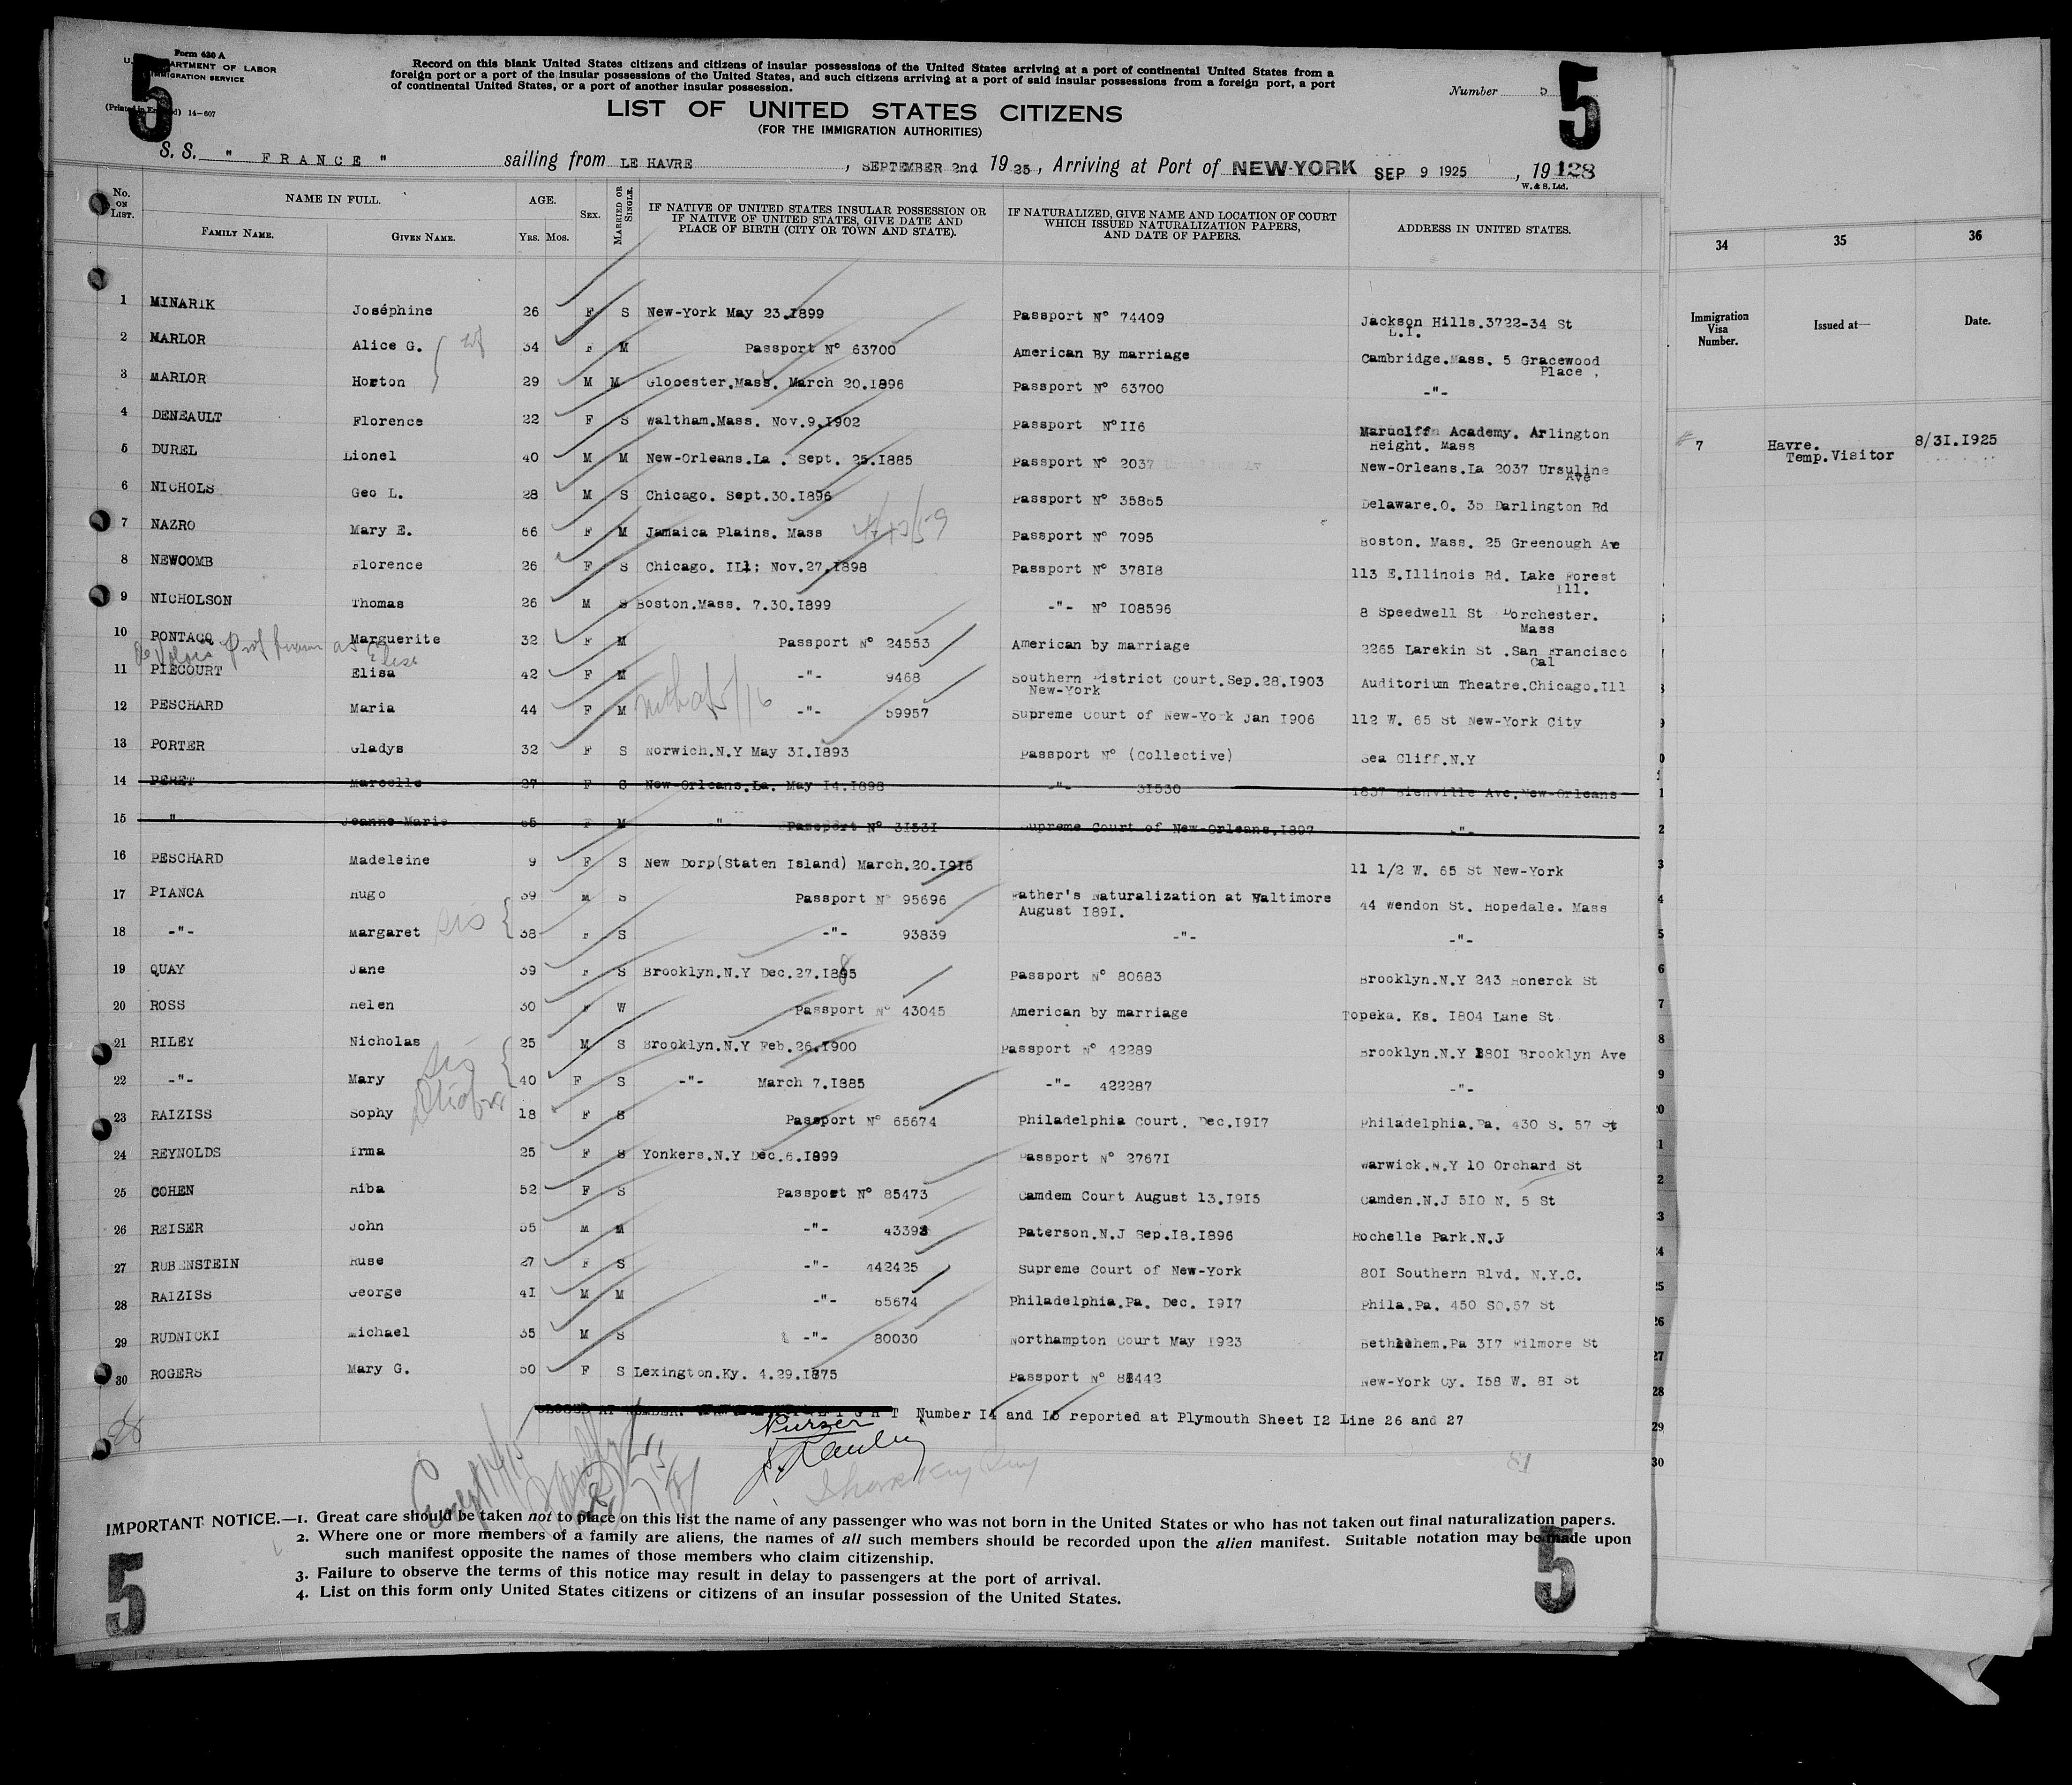 5
5
Form 630 A
U. S. DEPARTMENT OF LABOR
IMMIGRATION SERVICE
14-607
Record on this blank United States citizens and citizens of insular possessions of the United States arriving at a port of continental United States from a
foreign port or a port of the insular possessions of the United States, and such citizens arriving at a port of said insular possessions from a foreign port, a port
of continental United States, or a port of another insular possession.
Number 5
LIST OF UNITED STATES CITIZENS
(FOR THE IMMIGRATION AUTHORITIES)
S. S. " FRANCE " sailing from LE HAVRE, SEPTEMBER 2nd 1925, Arriving at Port of NEW-YORK SEP 9 1925, 19 128
W. & S. Ltd.
No. ON LIST. NAME IN FULL. FAMILY NAME. GIVEN NAME. AGE. YRS. MOS. SEX. MARRIED OR SINGLE. IF NATIVE OF UNITED STATES INSULAR POSSESSION OR IF NATIVE OF UNITED STATES, GIVE DATE AND PLACE OF BIRTH (CITY OR TOWN AND STATE). IF NATURALIZED, GIVE NAME AND LOCATION OF COURT WHICH ISSUED NATURALIZATION PAPERS, AND DATE OF PAPERS. ADDRESS IN UNITED STATES.
34 35 36
Immigration Visa Number. Issued at— Date.
1 MINARIK Joséphine 26 F S New-York May 23.1899 Passport N° 74409 Jackson Hills.3722-34 St
L.I.
2 MARLOR Alice G. 34 F M Passport N° 63700 American By marriage Cambridge.Mass. 5 Gracewood
Place
3 MARLOR Horton 29 M M Glocester.Mass. March 20.1896 Passport N° 63700 -"-
4 DENEAULT Florence 22 F S Waltham.Mass. Nov.9.1902 Passport N°116 Academy. Arlington
Height. Mass
7 Havre. 8/31.1925
Temp.Visitor
5 DUREL Lionel 40 M M New-Orleans.La . Sept. 25.1885 Passport N° 2037 New-Orleans.La 2037 Ursuline
Ave
6 NICHOLS Geo L. 28 M S Chicago. Sept.30.1896 Passport N° 35865 Delaware.O. 35 Darlington Rd
7 NAZRO Mary E. 66 F M Jamaica Plains. Mass Passport N° 7095 Boston. Mass. 25 Greenough Ave
8 NEWCOMB Florence 26 F S Chicago. Ill; Nov.27.1898 Passport N° 37818 113 E.Illinois Rd. Lake Forest
Ill.
9 NICHOLSON Thomas 26 M S Boston.Mass. 7.30.1899 -"- N° 108596 8 Speedwell St Dorchester.
Mass
10 PONTACQ Marguerite 32 F M Passport N° 24553 American by marriage 2265 Larekin St .San Francisco
Cal
11 PIECOURT Elisa 42 F M -"- 9468 Southern District Court.Sep.28.1903 Auditorium Theatre.Chicago.Ill
New-York
12 PESCHARD Maria 44 F M -"- 59957 Supreme Court of New-York Jan 1906 112 W. 65 St New-York City
13 PORTER Gladys 32 F S Norwich.N.Y May 31.1893 Passport N° (Collective) Sea Cliff.N.Y
14 PERET Marcelle 27 F S New-Orleans.La. May 14.1898 -"- 31530 1837 Bienville Ave.New-Orleans
15 " Jeanne-Marie 65 F M -"- Passport N° 31531 Supreme Court of New-Orleans.1897 -"-
16 PESCHARD Madeleine 9 F S New Dorp(Staten Island) March.20.1916 11 1/2 W. 65 St New-York
17 PIANCA Hugo 39 M S Passport N° 95696 Father's Naturalization at Baltimore 44 Wendon St. Hopedale. Mass
August 1891.
18 -"- Margaret 38 F S -"- 93839 -"- -"-
19 QUAY Jane 39 F S Brooklyn.N.Y Dec.27.1895 Passport N° 80683 Brooklyn.N.Y 243 Honerck St
20 ROSS Helen 30 F W Passport N° 43045 American by marriage Topeka. Ks. 1804 Lane St
21 RILEY Nicholas 25 M S Brooklyn.N.Y Feb.26.1900 Passport N° 42289 Brooklyn.N.Y 1801 Brooklyn Ave
22 -"- Mary 40 F S -"- March 7.1885 -"- 422287 -"-
23 RAIZISS Sophy 18 F S Passport N° 65674 Philadelphia Court. Dec.1917 Philadelphia.Pa. 430 S. 57 St
24 REYNOLDS Irma 25 F S Yonkers.N.Y Dec.6.1899 Passport N° 27671 Warwick.N.Y 10 Orchard St
25 COHEN Riba 52 F S Passport N° 85473 Camdem Court August 13.1915 Camden.N.J 510 N. 5 St
26 REISER John 55 M M -"- 43398 Paterson.N.J Sep.18.1896 Rochelle Park.N.J
27 RUBENSTEIN Ruse 27 F S -"- 442425 Supreme Court of New-York 801 Southern Blvd. N.Y.C.
28 RAIZISS George 41 M M -"- 65674 Philadelphia.Pa. Dec. 1917 Phila.Pa. 450 SO.57 St
29 RUDNICKI Michael 35 M S -"- 80030 Northampton Court May 1923 Bethlehem.Pa 317 Filmore St
30 ROGERS Mary G. 50 F S Lexington.Ky. 4.29.1875 Passport N° 81442 New-York Cy. 158 W. 81 St
CLOSED AT NUMBER: Number 14 and 15 reported at Plymouth Sheet 12 Line 26 and 27
Purser
81
IMPORTANT NOTICE.—1. Great care should be taken not to place on this list the name of any passenger who was not born in the United States or who has not taken out final naturalization papers.
2. Where one or more members of a family are aliens, the names of all such members should be recorded upon the alien manifest. Suitable notation may be made upon
such manifest opposite the names of those members who claim citizenship.
3. Failure to observe the terms of this notice may result in delay to passengers at the port of arrival.
4. List on this form only United States citizens or citizens of an insular possession of the United States.
5
5